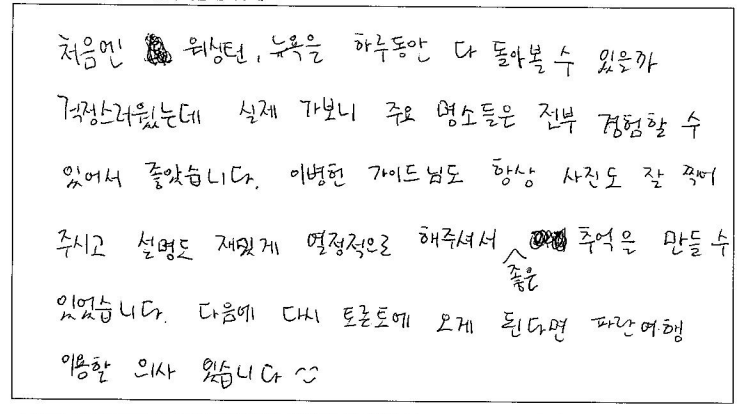 처음엔 워싱턴, 뉴욕을 하루동안 다 돌아볼 수 있을까
걱정스러웠는데 실제 가보니 주요 명소들은 전부 경험할 수
있어서 좋았습니다. 이병헌 가이드님도 항상 사진도 잘 찍어
주시고 설명도 재밌게 열정적으로 해주셔서 좋은 추억을 만들 수
있었습니다. 다음에 다시 토론토에 오게 된다면 파란여행
이용할 의사 있습니다